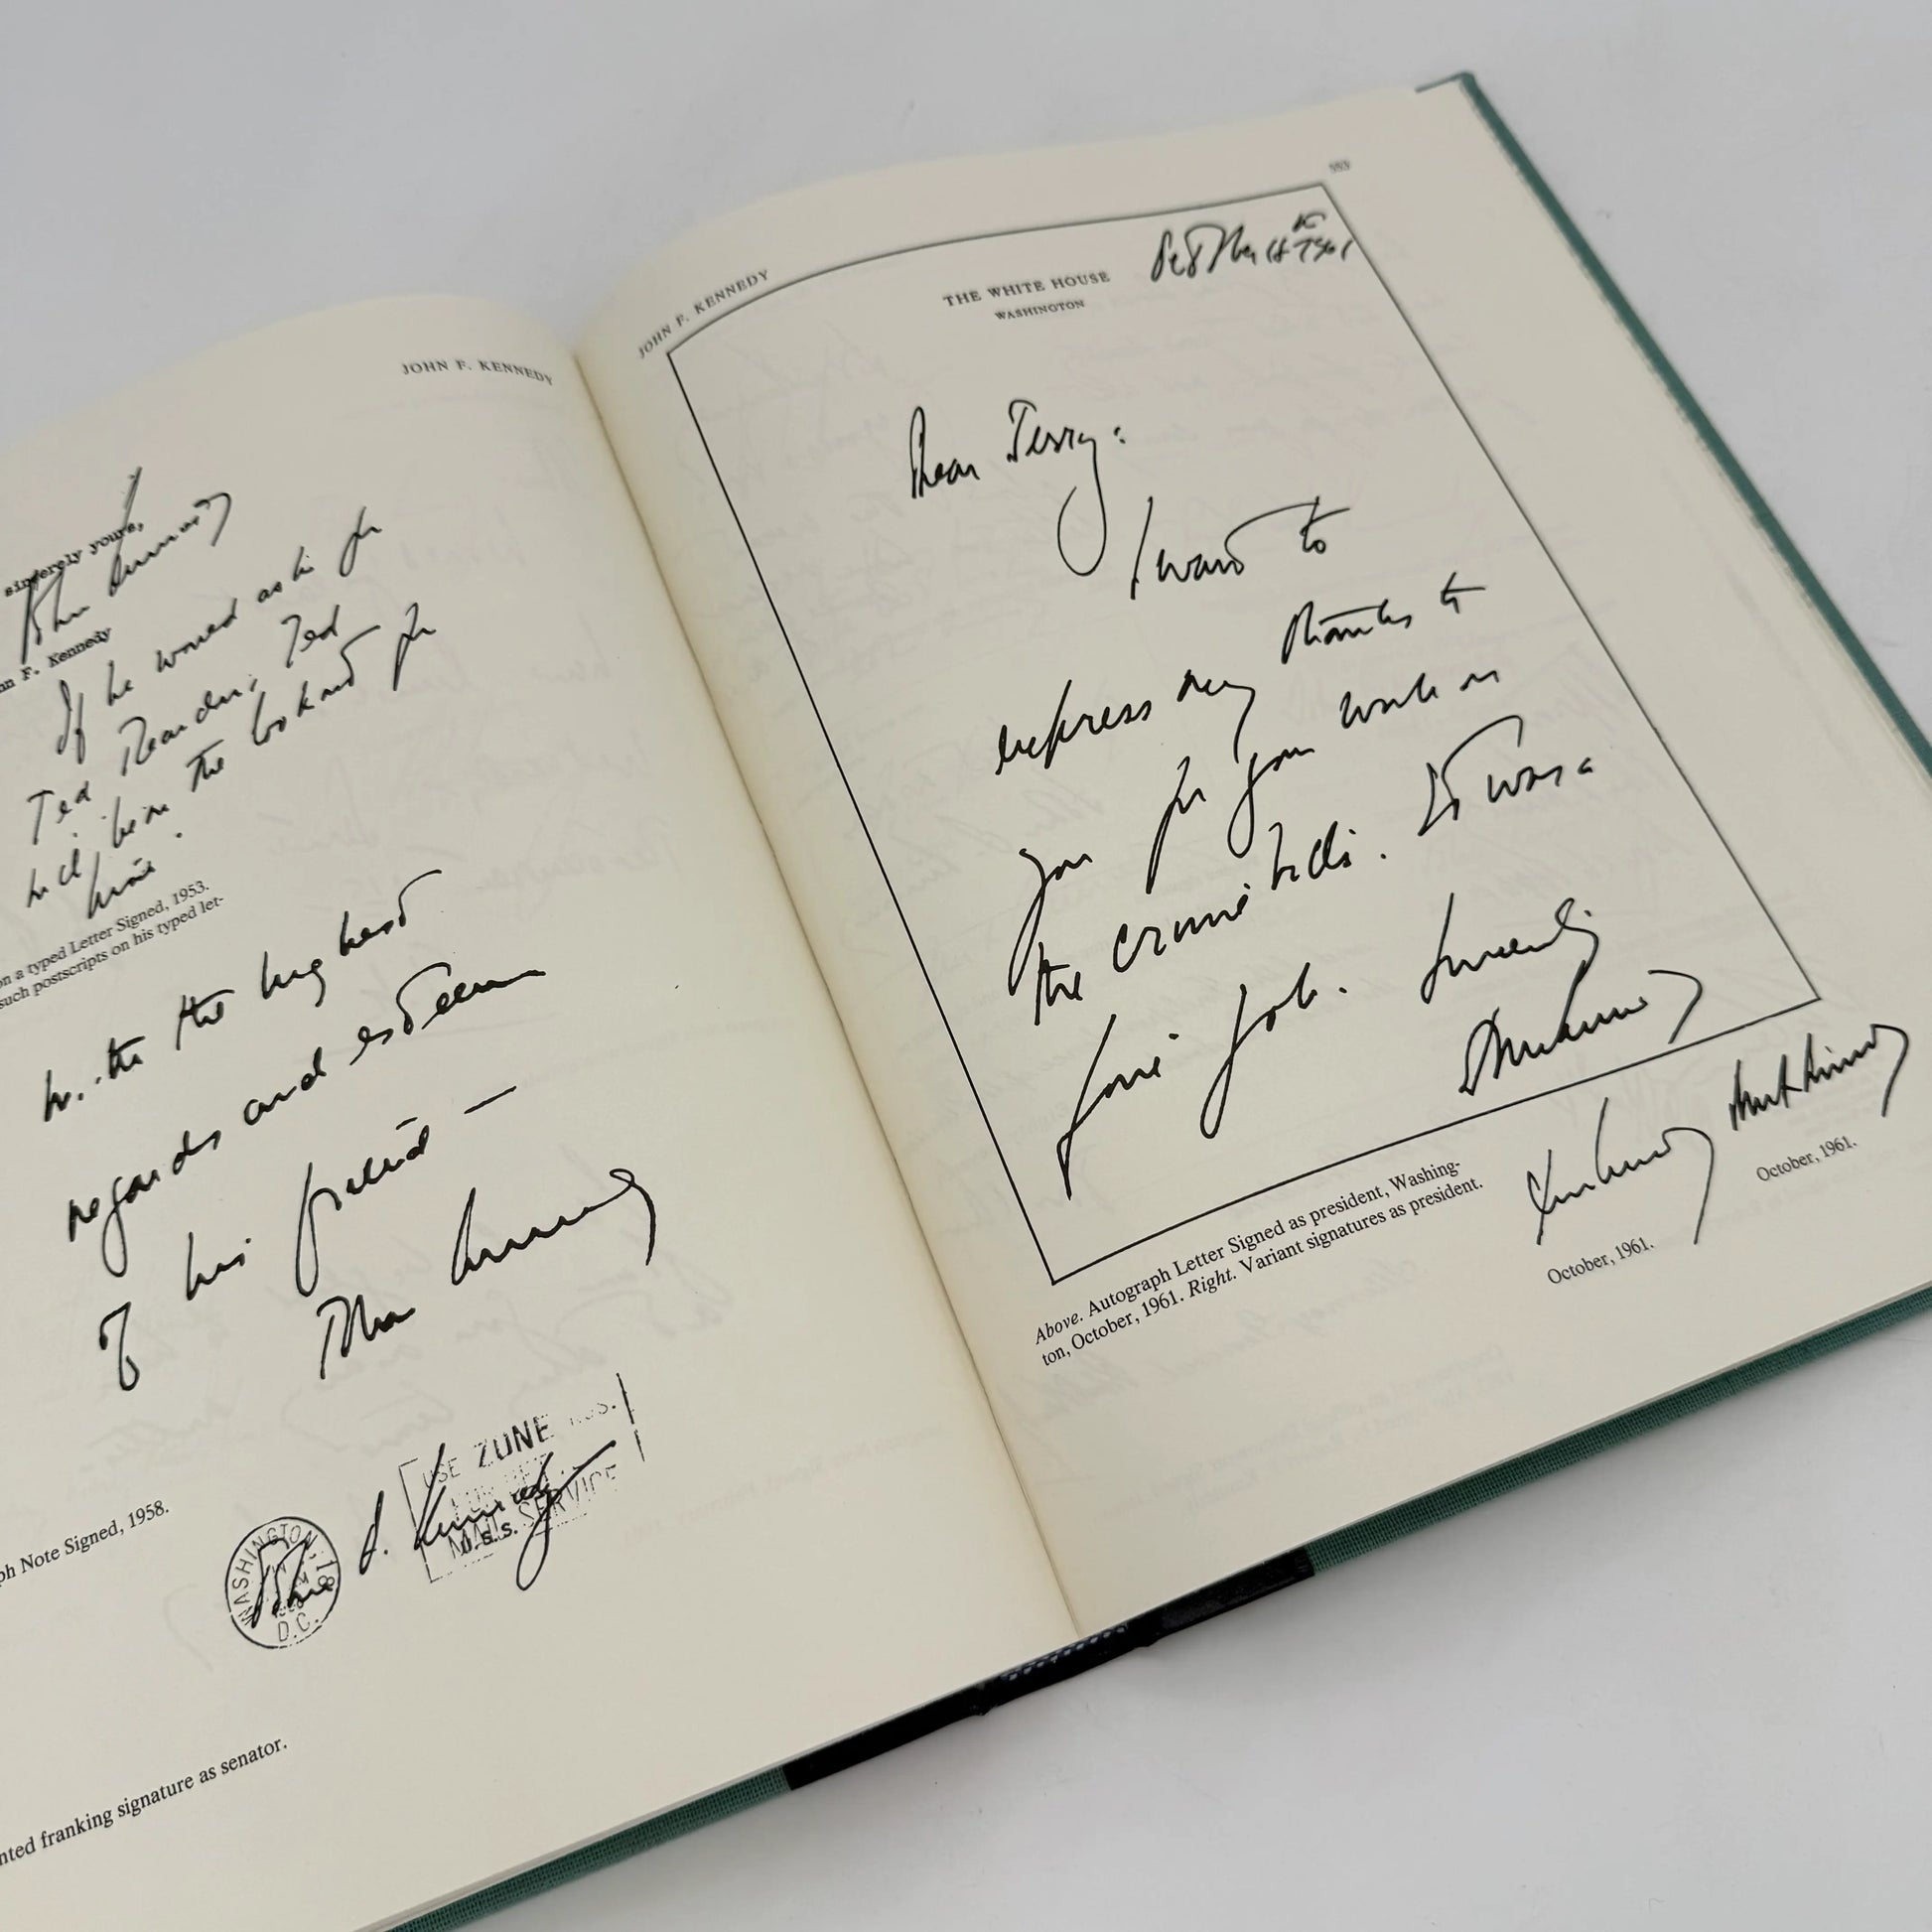 JOHN F. KENNEDY
sincerely yours,
John Kennedy
hn F. Kennedy
If he would ask for
Ted Reardon, Ted
will have the book for
him.
on a typed Letter Signed, 1953.
such postscripts on his typed let-
With the highest
regards and esteem
of his friend —
John Kennedy
ph Note Signed, 1958.
WASHINGTON
D.C.
USE ZONE NOS.
FOR BETTER
MAIL SERVICE
U.S.S.
John F. Kennedy
nted franking signature as senator.
JOHN F. KENNEDY
553
THE WHITE HOUSE
WASHINGTON
Dear Jerry:
I want to
express my thanks to
you for your work on
the crime bills. It was a
fine job. Sincerely
John Kennedy
Above. Autograph Letter Signed as president, Washing-
ton, October, 1961. Right. Variant signatures as president.
October, 1961.
October, 1961.